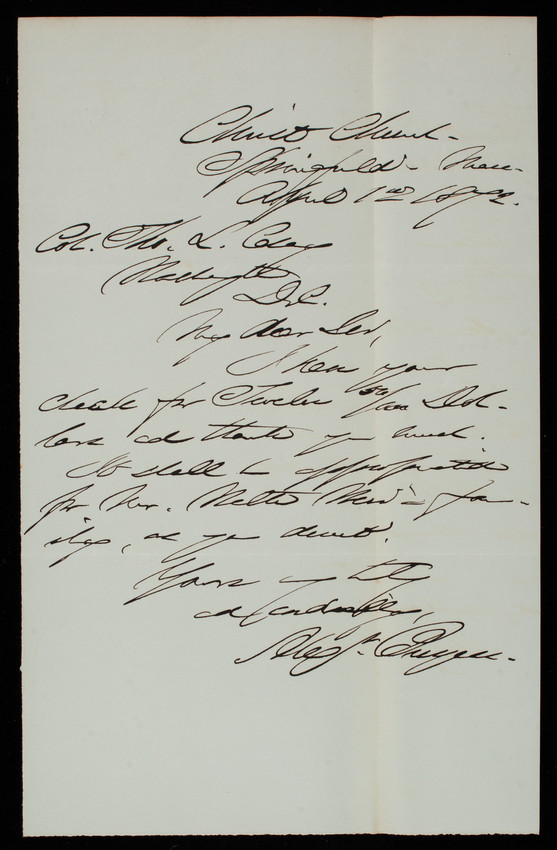 Christ Church -
Springfield - Mass
April 1st 1892.
Col. Tho. L. Casey
Washington
D.C.
My dear Sir,
I have your
check for Twelve 50/100 Dol-
lars and thank you much.
It shall be appropriated
for Mr. fam-
ily, as you direct.
Yours
and cordially,